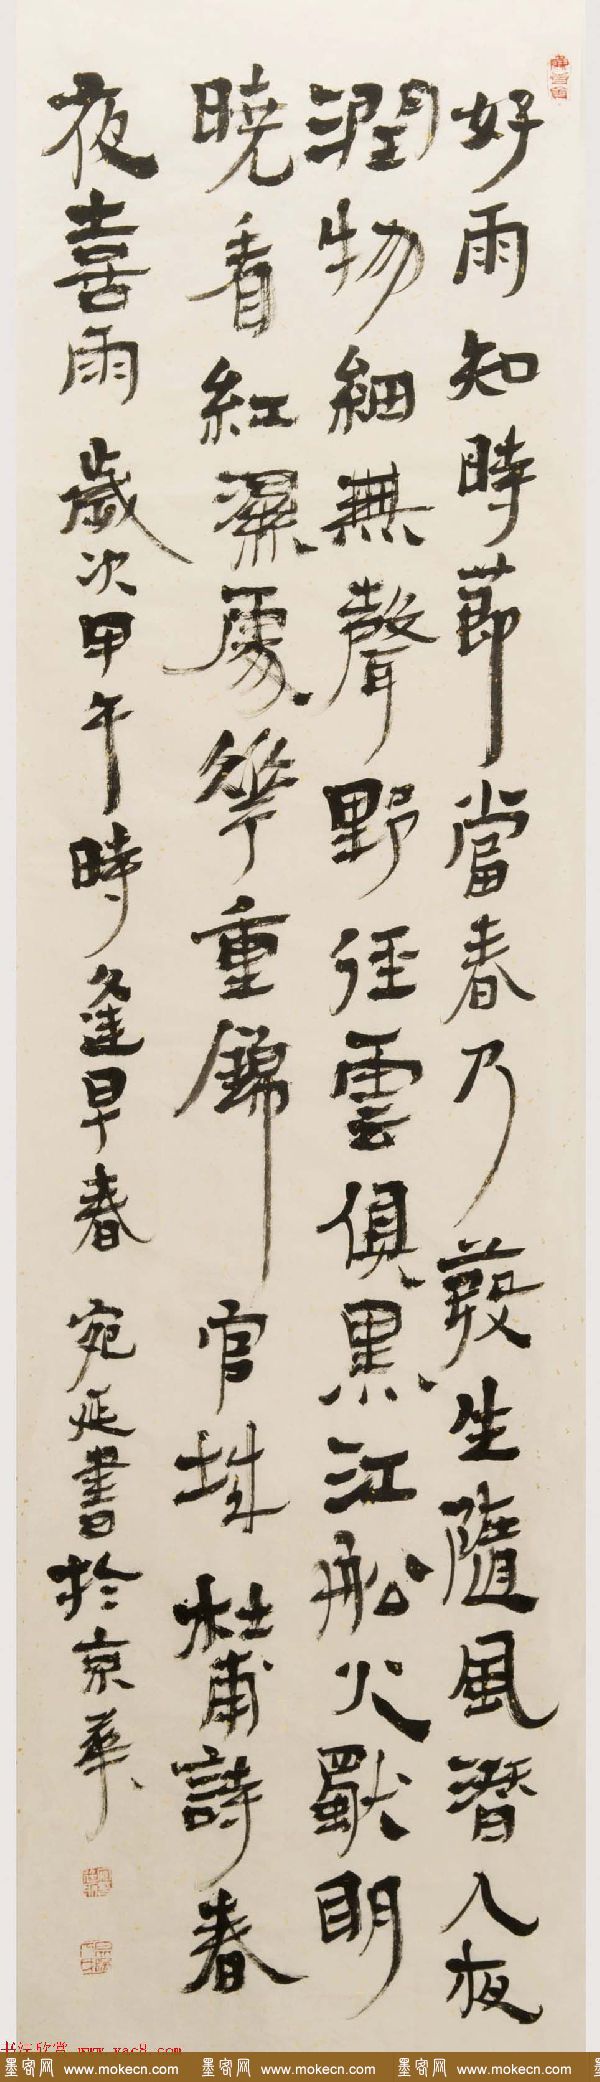 好雨知時節當春乃發生隨風潛入夜
潤物細無聲野徑雲俱黑江船火獨明
曉看紅濕處花重錦官城杜甫詩春
夜喜雨歲次甲午時逢早春宛延書於京華
书法欣赏 www.yac8.com
墨客网 www.mokecn.com 墨客网 www.mokecn.com 墨客网 www.mokecn.com